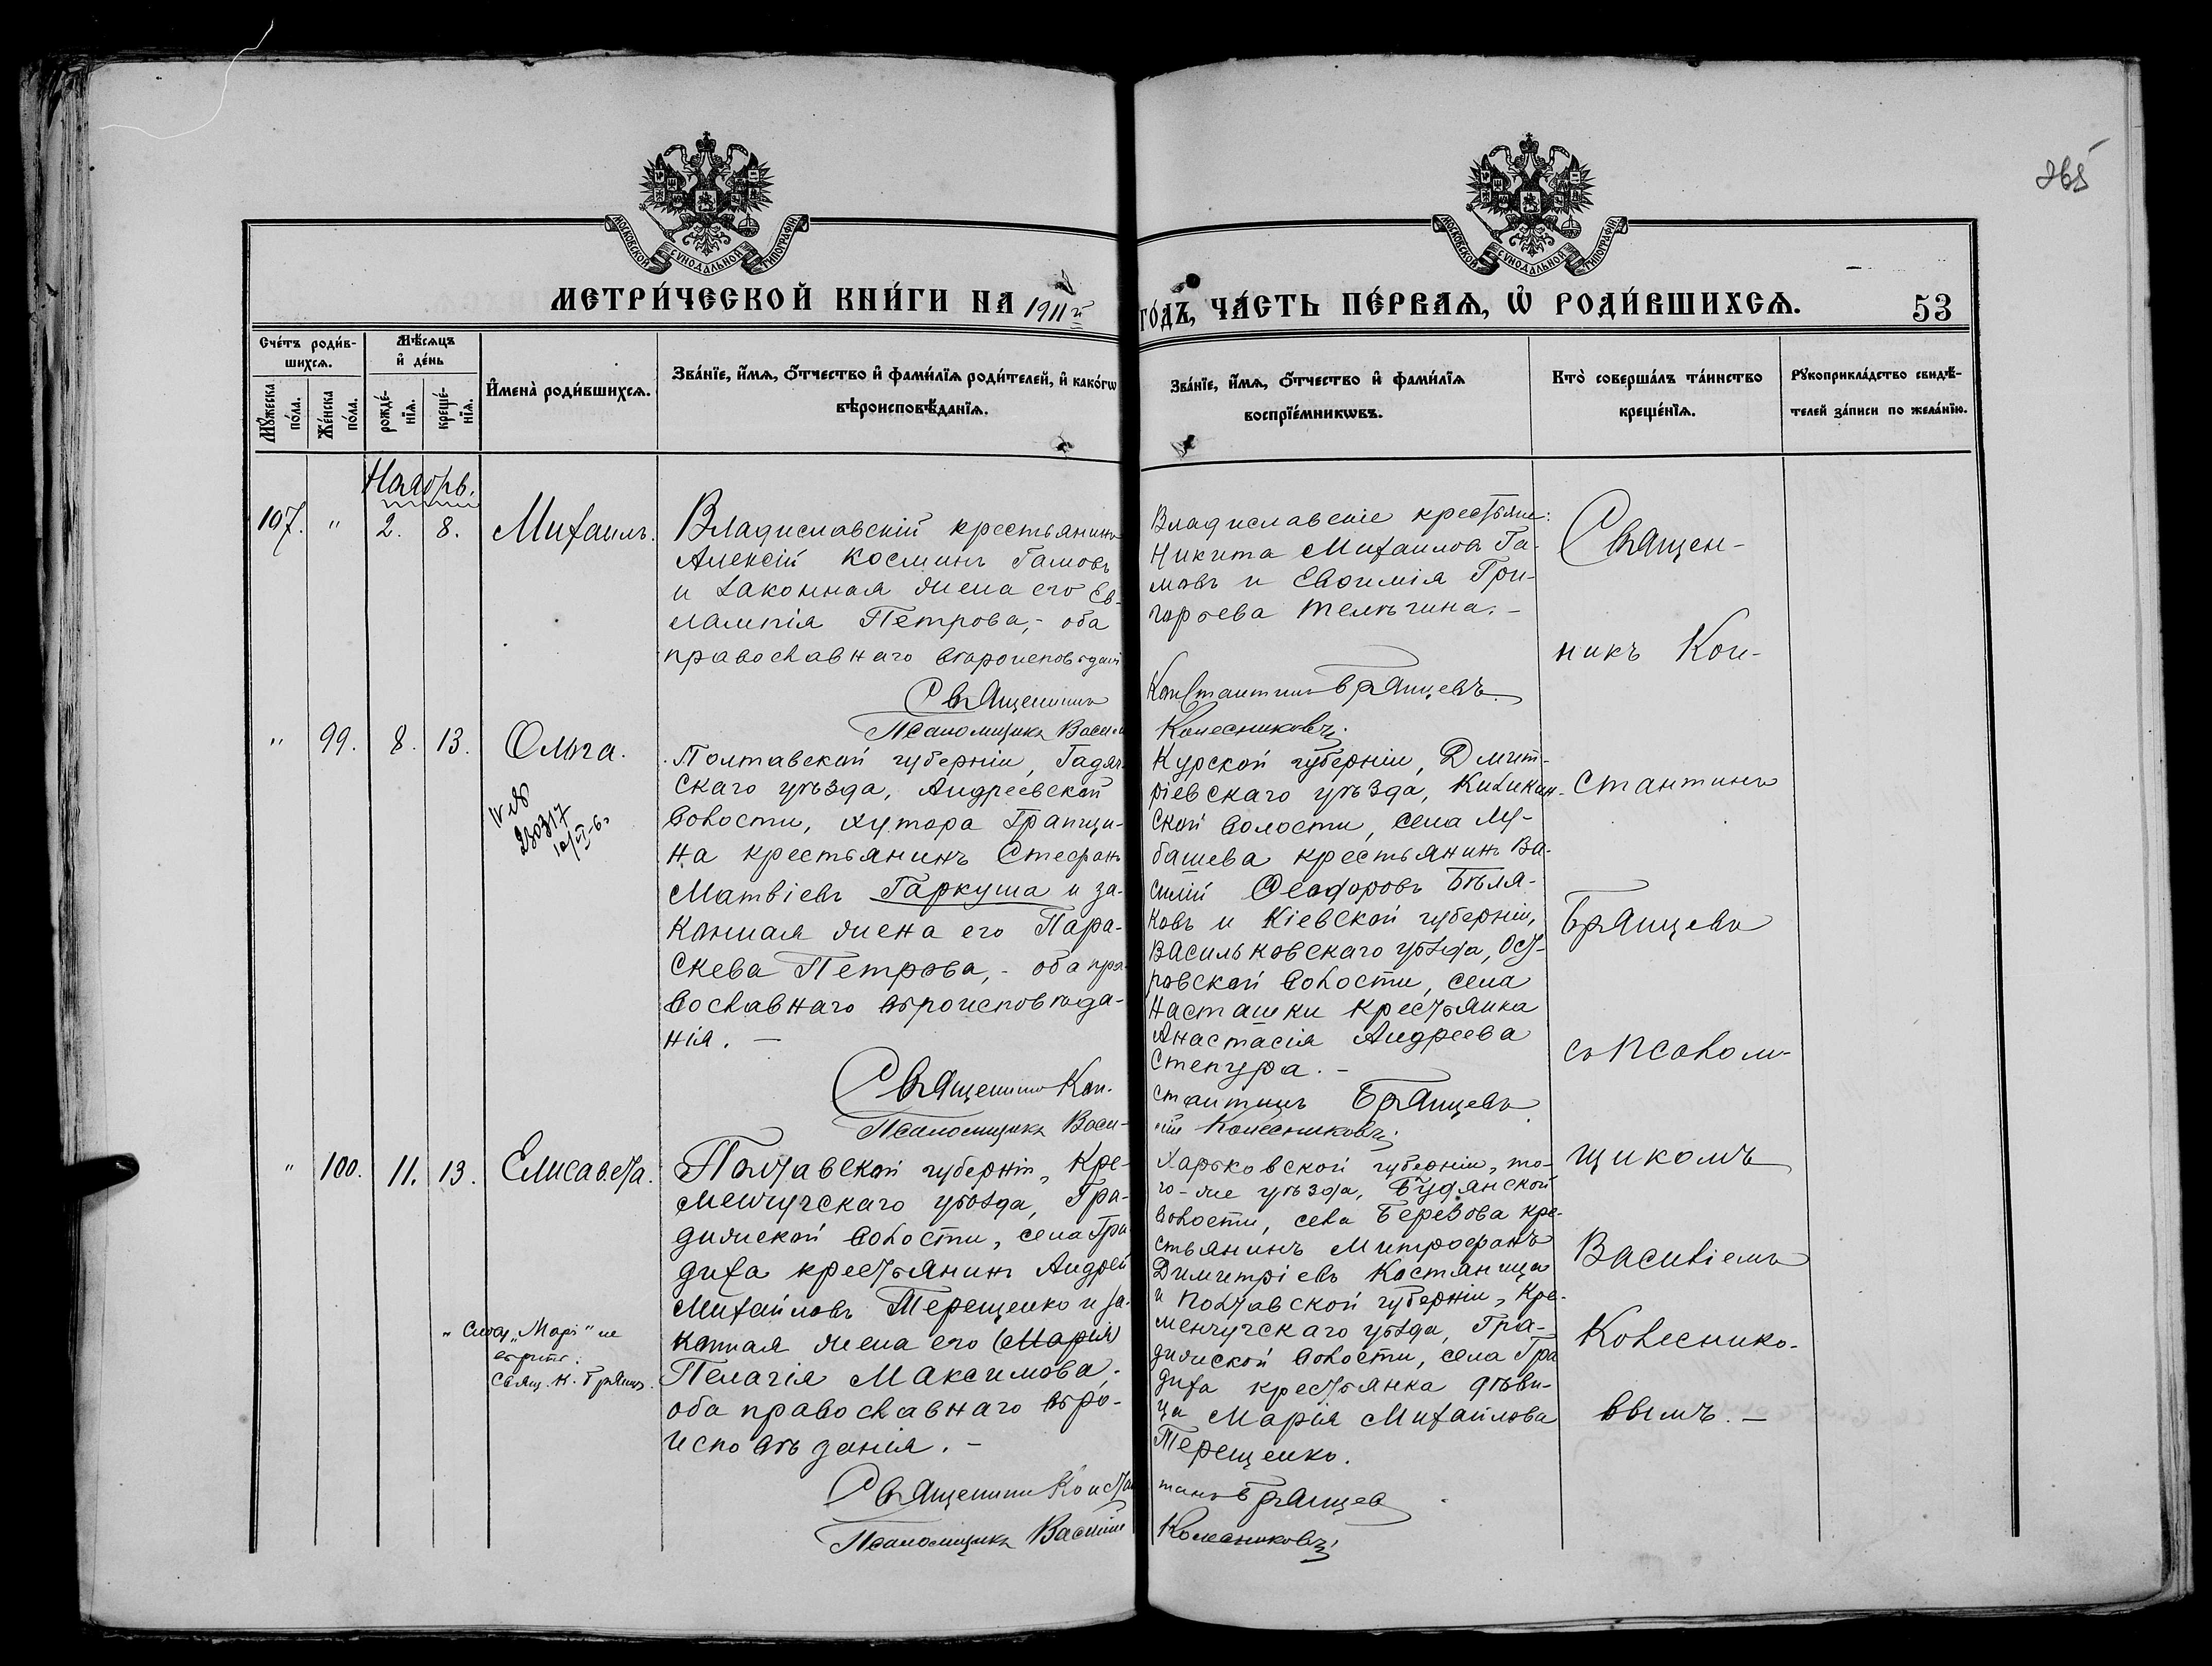 265
МОСКОВСКОЙ СѴНОДАЛЬНОЙ ТИПОГРАФІИ
МОСКОВСКОЙ СѴНОДАЛЬНОЙ ТИПОГРАФІИ
МЕТРИ́ЧЕСКОЙ КНИ́ГИ НА 1911й
ГО́ДЪ, ЧА́СТЬ ПЕ́РВАѦ, Ѡ҆ РОДИ́ВШИХСѦ.
53
Сче́тъ роди́в-
шихсѧ.
Мꙋ́жеска по́ла.
Же́нска по́ла.
Мѣ́сѧцъ
и҆ де́нь
рожде́-нїѧ.
креще́-нїѧ.
И҆мена̀ роди́вшихсѧ.
Зва́нїе, и҆́мѧ, ѻ҆́тчество и҆ фами́лїѧ роди́телей, и҆ како́гѡ
вѣроисповѣ́данїѧ.
Зва́нїе, и҆́мѧ, ѻ҆́тчество и҆ фами́лїѧ
воспрїе́мникѡвъ.
Кто̀ соверша́лъ та́инство
креще́нїѧ.
Рꙋкоприкла́дство свидѣ́-
телей за́писи по жела́нїю.
Ноябрь.
107. " 2. 8. Михаилъ.
Владиславскій крестьянинъ
Алексій Косминъ Гамовъ
и законная жена его Ев-
лампія Петрова,- оба
православнаго вѣроисповѣдані
Священникъ
Псаломщикъ Васил
Владиславскіе крестьяне:
Никита Михаиловъ Га-
мовъ и Евѳимія Гри-
горьева Телѣгина.-
Константинъ Брянцевъ
Колесниковъ.
" 99. 8. 13. Ольга.
IV-ЯЯ
230317
Полтавской губерніи, Гадяч-
скаго уѣзда, Андреевской
волости, хутора Грапщи-
на крестьянинъ Стефанъ
Матвіевъ Гаркуша и за-
конная жена его Пара-
скева Петрова,- оба пра-
вославнаго вѣроисповѣда-
нія. -
Священникъ Кон-
Псаломщикъ Васи-
Курской губерніи, Дмит-
ріевскаго уѣзда,
ской волости, села Лу-
башева крестьянинъ Ва-
силій Ѳеодоровъ Бѣля-
ковъ и Кіевской губерніи,
Васильковскаго уѣзда,
ровской волости, села
Насташки крестьянка
Анастасія Андреева
Степура. -
стантинъ Брянцевъ
лій Колесниковъ.
" 100. 11. 13. Елисавета.
"Слову "Марі" не
вѣрить.
Свящ. К. Брянц.
Полтавской губерніи, Кре-
менчугскаго уѣзда, Гра-
дижской волости, села Гра
диха крестьянинъ Андрей
Михайловъ Терещенко и за-
конная жена его (Марія)
Пелагія Максимова,-
оба православнаго вѣро-
исповѣданія. -
Священникъ Констан
Псаломщикъ Василій
Харьковской губерніи, то-
го-же уѣзда, Будянской
волости, села Березова кре-
стьянинъ Митрофанъ
Димитріевъ Костяница
и Полтавской губерніи, Кре-
менчугскаго уѣзда, Гра-
дижской волости, села Гра
диха крестьянка дѣви-
ца Марія Михайлова
Терещенко.
тинъ Брянцев
Колесниковъ
Священ-
никъ Кон-
стантинъ
Брянцевъ
съ псалом-
щикомъ
Василіемъ
Колеснико-
вымъ. -